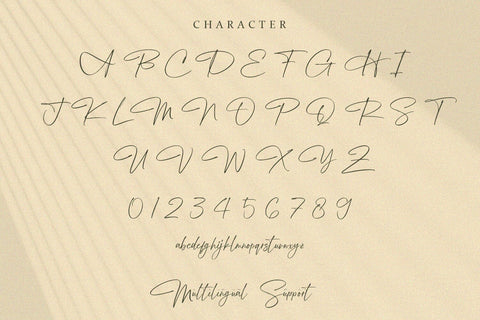 CHARACTER
A B C D E F G H I
J K L M N O P Q R S T
U V W X Y Z
0 1 2 3 4 5 6 7 8 9
abcdefghijklmnopqrstuvwxyz
Multilingual Support